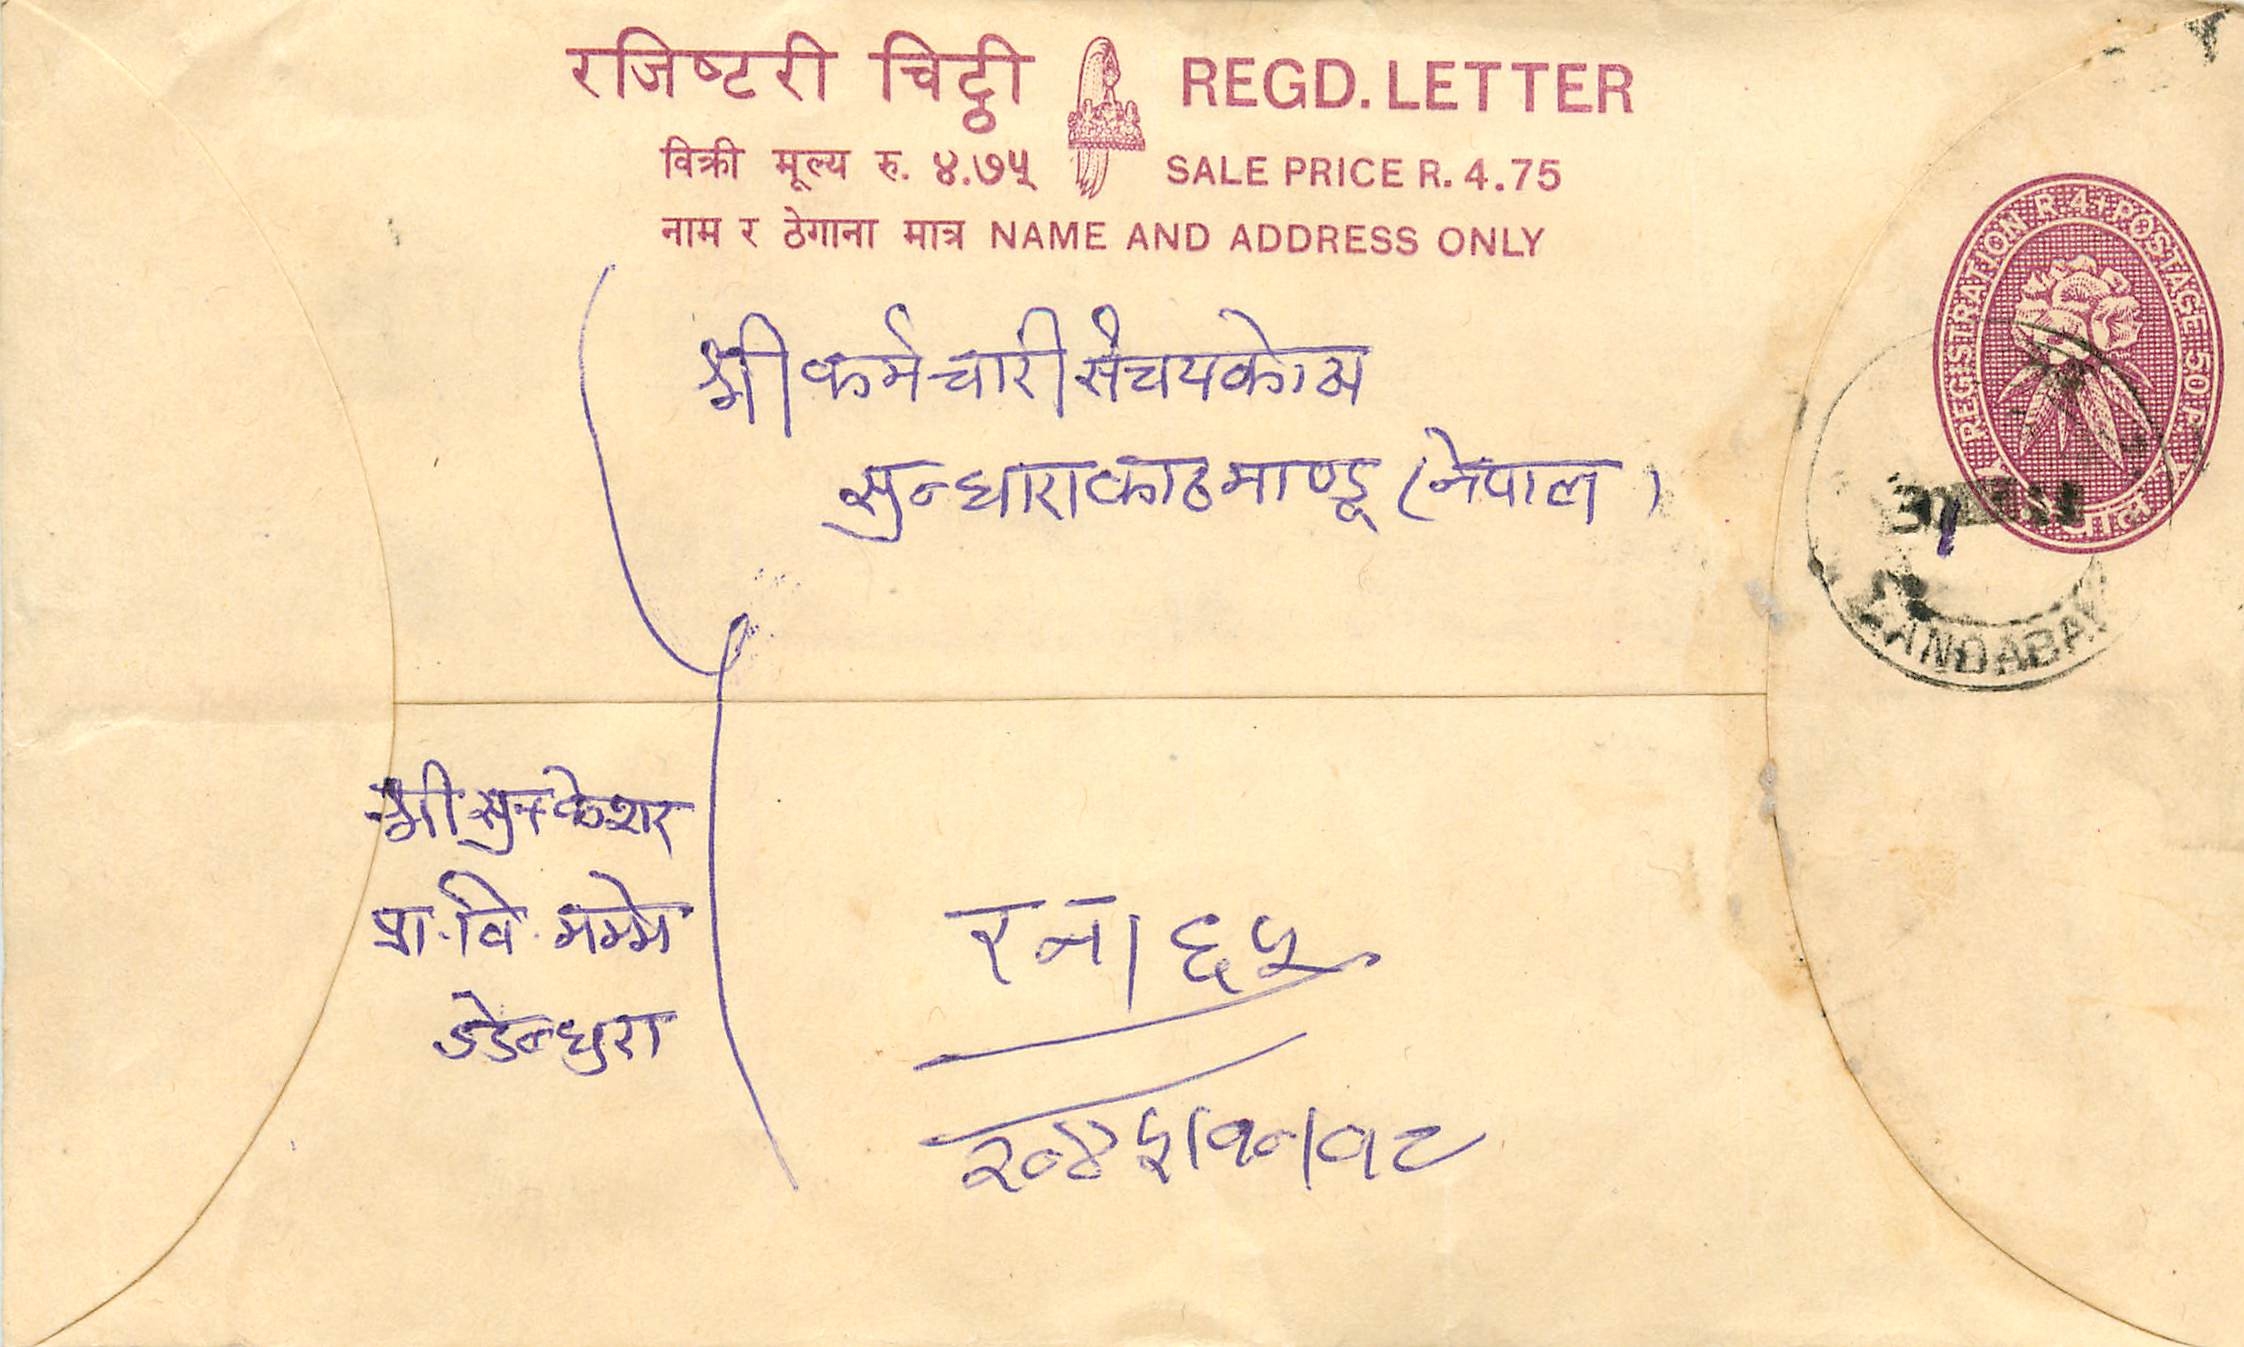 रजिष्टरी चिट्ठी REGD. LETTER
विक्री मूल्य रु. ४.७५ SALE PRICE R. 4.75
नाम र ठेगाना मात्र NAME AND ADDRESS ONLY
REGISTRATION R.4+POSTAGE 50 P.
नेपाल
श्री कर्मचारी संचयकोष
सुन्धारा काठमाण्डू (नेपाल)
श्री सुनकेशर
प्रा.वि.
डडेल्धुरा